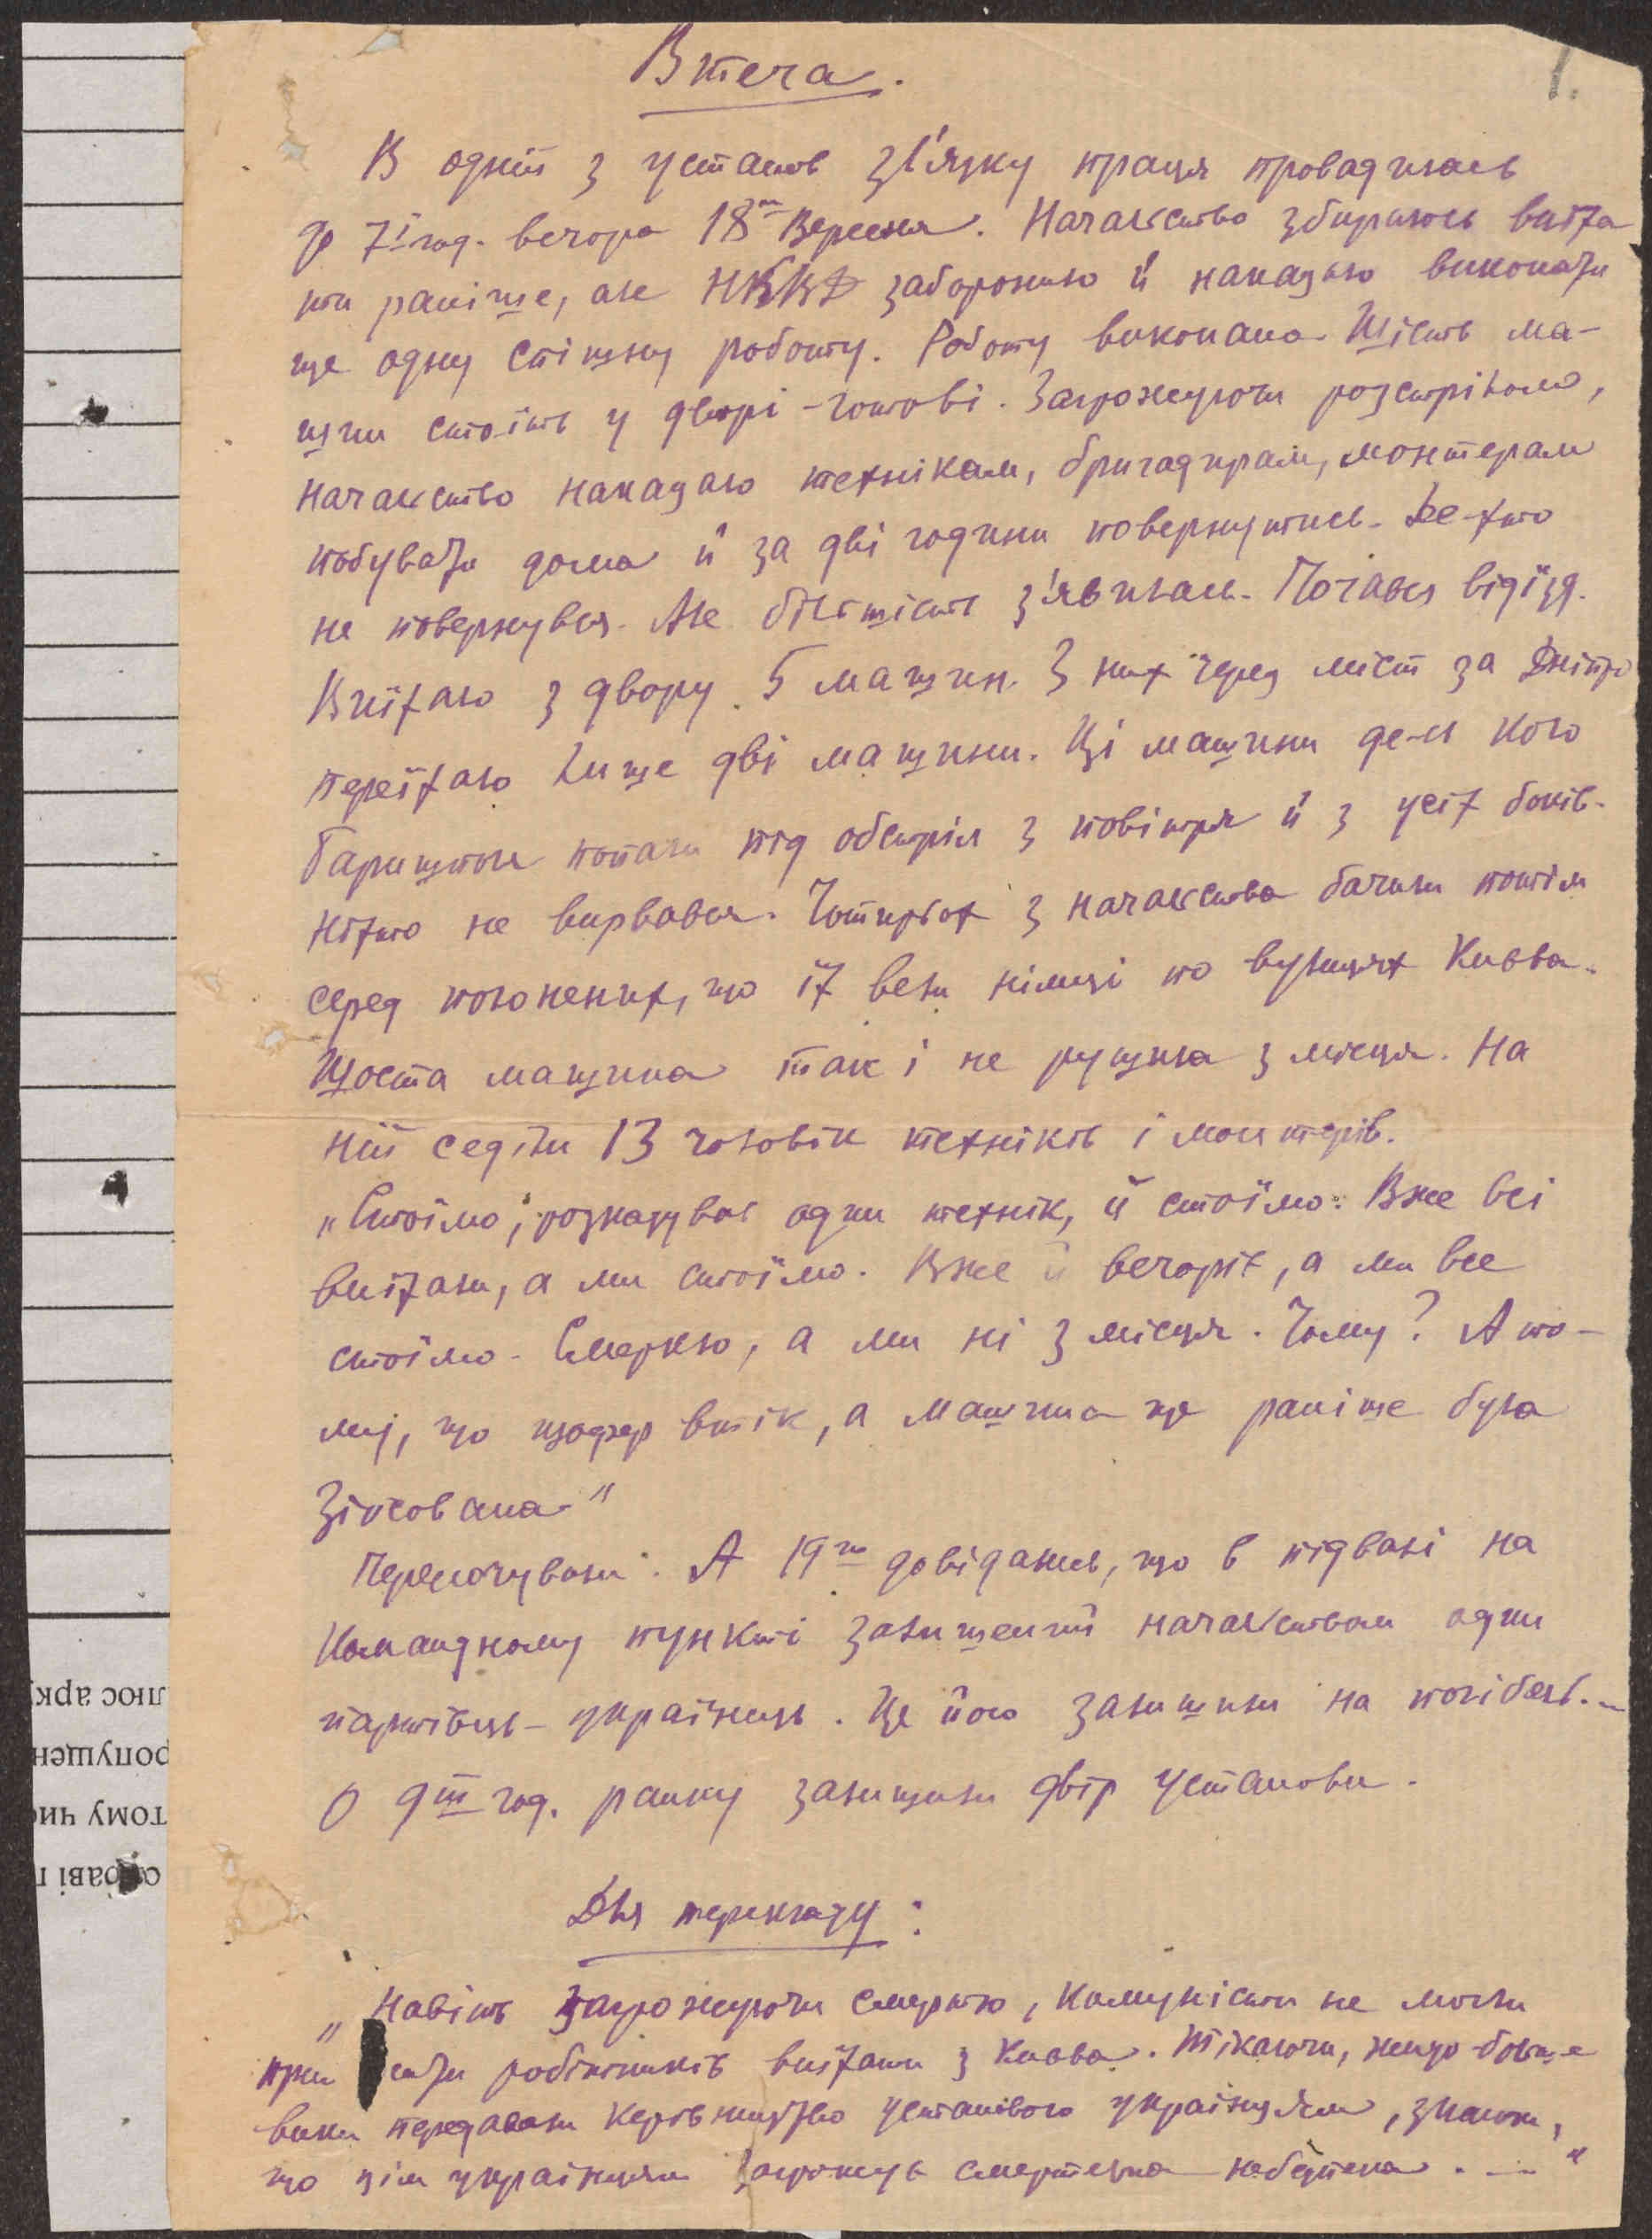 Втеча.
1.
В одній з установ зв'язку праця провадилась
до 7ї год. вечора 18го Вересня. Начальство збиралось виїха
ти раніше, але НКВД заборонило й наказало виконати
ще одну спішну роботу. Роботу виконано. Шість ма-
шин стоїть у дворі - готові. Загрожуючи розстрілом,
начальство наказало технікам, бригадирам, монтерам
побувати дома й за дві години повернутись. Де-хто
не повернувся. Але більшість з'явилась. Почався від'їзд.
Виїхало з двору 5 машин. З них через міст за Дніпро
переїхало лише дві машини. Ці машини де-сь коло
Баришполя попали під обстріл з повітря й з усіх боків.
Ніхто не вирвався. Чотирьох з начальства бачили потім
серед полонених, що їх вели німці по вулицях Києва.
Шоста машина так і не рушила з місця. На
ній седіли 13 чоловік техніків і монтерів.
„Стоїмо, розказував один технік, й стоїмо. Вже всі
виїхали, а ми стоїмо. Вже й вечоріє, а ми все
стоїмо. Смеркло, а ми ні з місця. Чому? А то-
му, що шофер втік, а машина ще раніше була
зіпсована."
Переночували. А 19го довідались, що в підвалі на
Командному пункті залишений начальством один
партієць - українець. Це його залишили на погібель.
О 9ій год. ранку залишили двір установи.
Для перекладу:
„Навіть загрожуючи смертю, комуністи не могли
при сити робітників виїхати з Києва. Тікаючи, жидо-больше
вики передавали керівництво установою українцям, знаючи,
що цім українцям загрожує смертельна небезпека. — "
люс арку
ропущен
тому чис
справі п